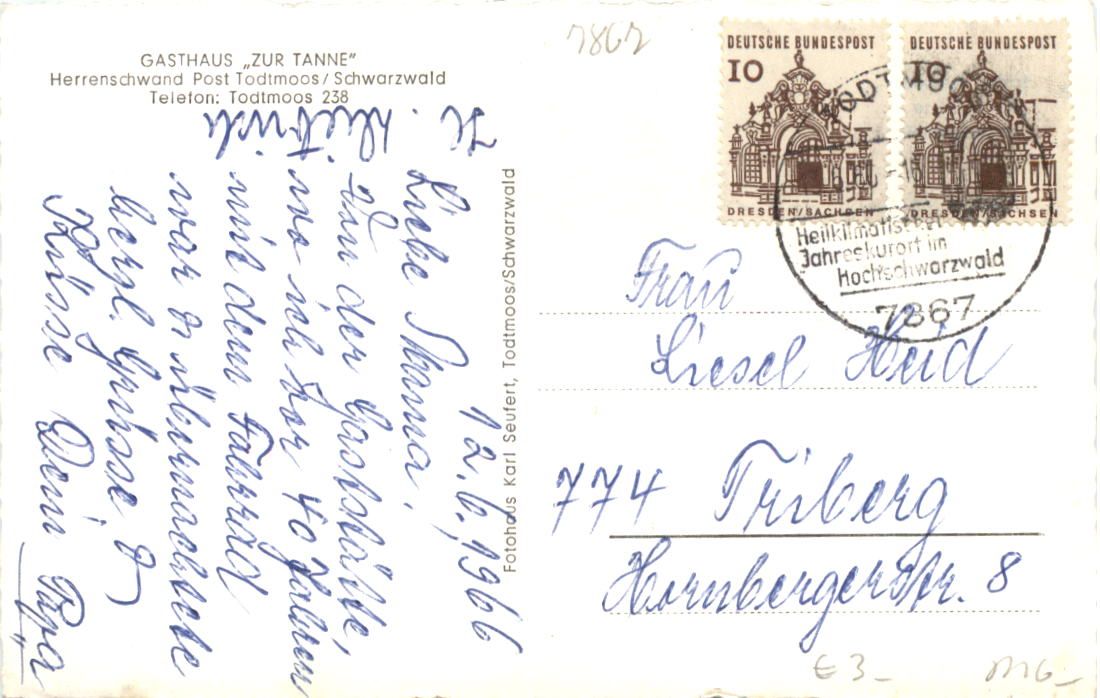 GASTHAUS „ZUR TANNE"
Herrenschwand Post Todtmoos/Schwarzwald
Telefon: Todtmoos 238
7867
DEUTSCHE BUNDESPOST
10
DRESDEN/SACHSEN
DEUTSCHE BUNDESPOST
10
DRESDEN/SACHSEN
TODTMOOS
Heilklimatischer
Jahreskurort im
Hochschwarzwald
7867
12.6.1966
Liebe Mama!
In der Gaststätte,
wo ich vor 40 Jahren
mit dem Fahrrad
war & übernachtete
herzl. Grüsse &
Küsse Dein Papa
Fotohaus Karl Seufert, Todtmoos/Schwarzwald
Frau
Liesel Heid
774 Triberg
Hornbergerstr. 8
€ 3-